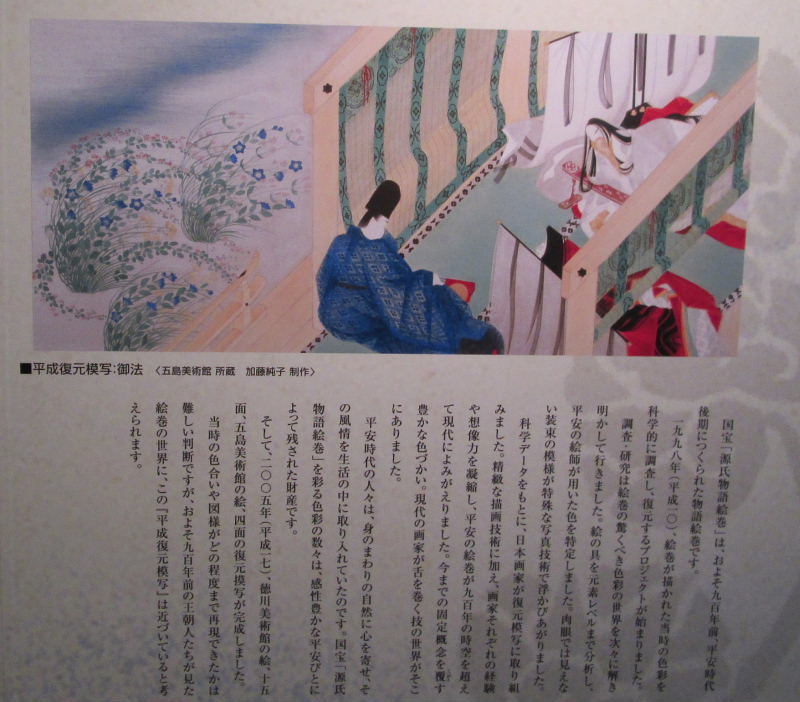 ■平成復元模写:御法 〈五島美術館 所蔵 加藤純子 制作〉
国宝「源氏物語絵巻」は、およそ九百年前、平安時代
後期につくられた物語絵巻です。
一九九八年(平成一〇)、絵巻が描かれた当時の色彩を
科学的に調査し、復元するプロジェクトが始まりました。
調査・研究は絵巻の驚くべき色彩の世界を次々に解き
明かして行きました。絵の具を元素レベルまで分析し、
平安の絵師が用いた色を特定しました。肉眼では見えな
い装束の模様が特殊な写真技術で浮かびあがりました。
科学データをもとに、日本画家が復元模写に取り組
みました。精緻な描画技術に加え、画家それぞれの経験
や想像力を凝縮し、平安の絵巻が九百年の時空を超え
て現代によみがえりました。今までの固定概念を覆す
豊かな色づかい。現代の画家が舌を巻く技の世界がそこ
にありました。
平安時代の人々は、身のまわりの自然に心を寄せ、そ
の風情を生活の中に取り入れていたのです。国宝「源氏
物語絵巻」を彩る色彩の数々は、感性豊かな平安びとに
よって残された財産です。
そして、二〇〇五年(平成一七)、徳川美術館の絵、十五
面、五島美術館の絵、四面の復元摸写が完成しました。
当時の色合いや図様がどの程度まで再現できたかは
難しい判断ですが、およそ九百年前の王朝人たちが見た
絵巻の世界に、この『平成復元模写』は近づいていると考
えられます。